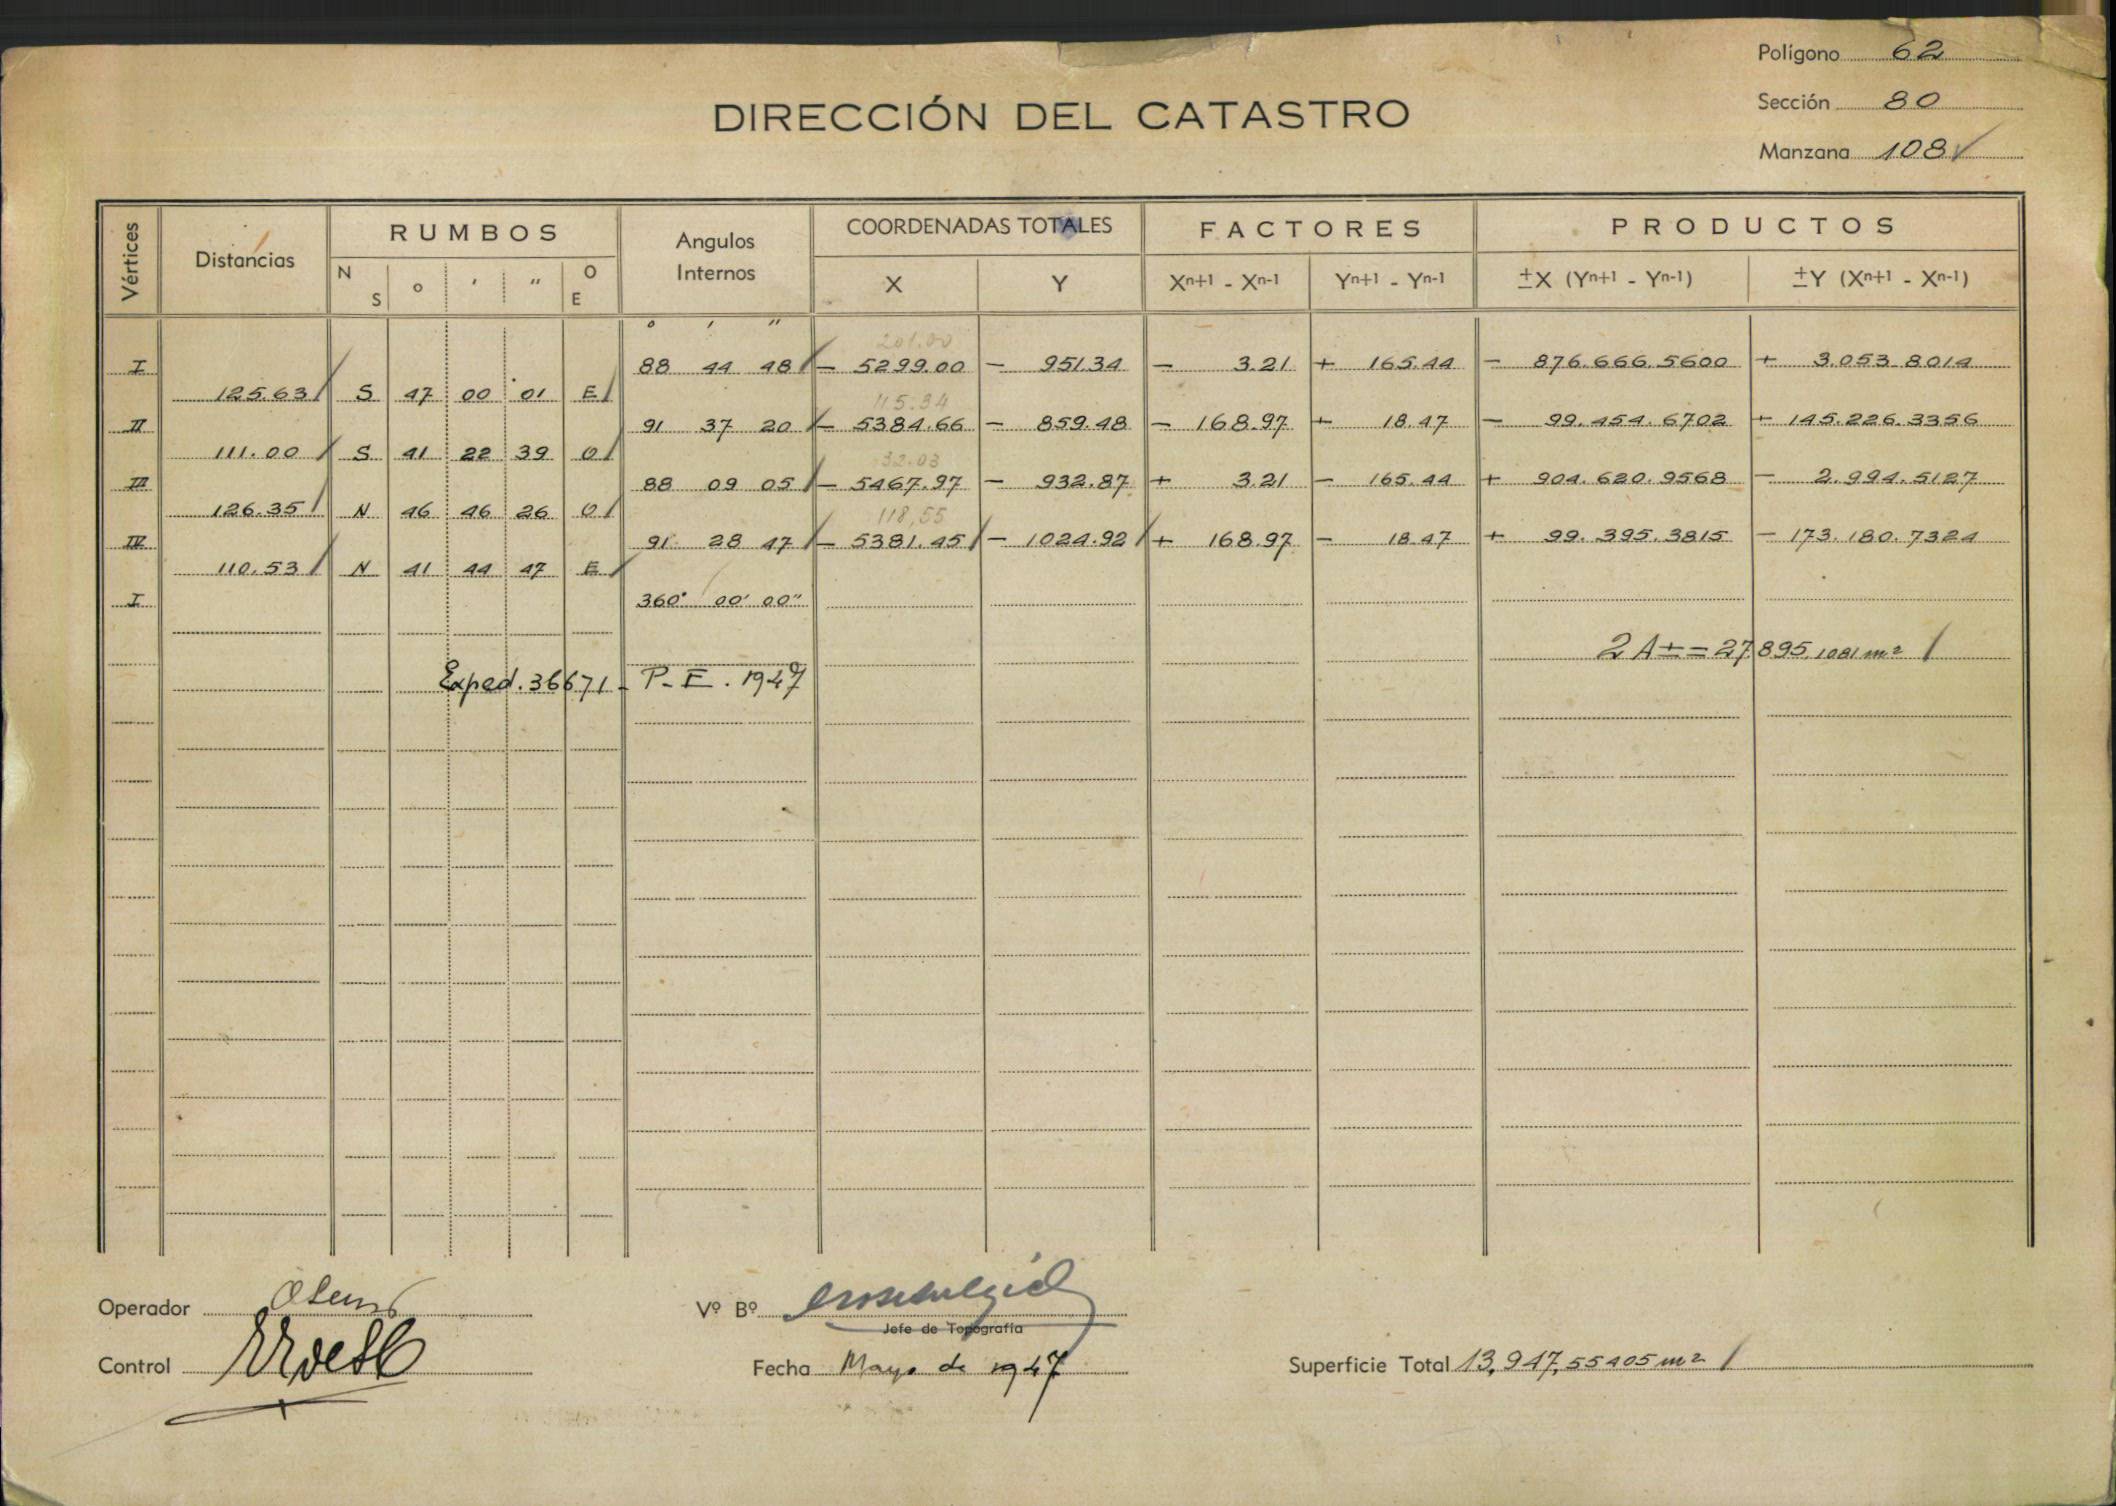 Polígono 62
DIRECCIÓN DEL CATASTRO
Sección 80
Manzana 108
Vértices Distancias RUMBOS Angulos Internos COORDENADAS TOTALES FACTORES PRODUCTOS
N S ° ' " O E X Y Xn+1 - Xn-1 Yn+1 - Yn-1 ±X (Yn+1 - Yn-1) ±Y (Xn+1 - Xn-1)
° ' "
201.00
I 88 44 48 - 5299.00 - 951.34 - 3.21 + 165.44 - 876.666.5600 + 3.053.8014
125.63 S 47 00 01 E 115.34
II 91 37 20 - 5384.66 - 859.48 - 168.97 + 18.47 - 99.454.6702 + 145.226.3356
111.00 S 41 22 39 O 32.03
III 88 09 05 - 5467.97 - 932.87 + 3.21 - 165.44 + 904.620.9568 - 2.994.5127
126.35 N 46 46 26 O 118,55
IV 91 28 47 - 5381.45 - 1024.92 + 168.97 - 18.47 + 99.395.3815 - 173.180.7324
110.53 N 41 44 47 E
I 360° 00' 00"
2 A ± = 27.895,1081 m²
Exped. 36671 - P. E. 1947
Operador
Vº Bº
Jefe de Topografía
Control
Fecha Mayo de 1947
Superficie Total 13,947,55405 m²